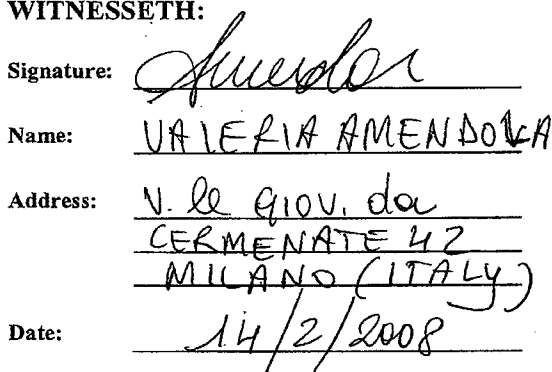 WITNESSETH:
Signature:
Name: VALERIA AMENDOLA
Address: V. le giov. da
CERMENATE 42
MILANO (ITALY)
Date: 14/2/2008